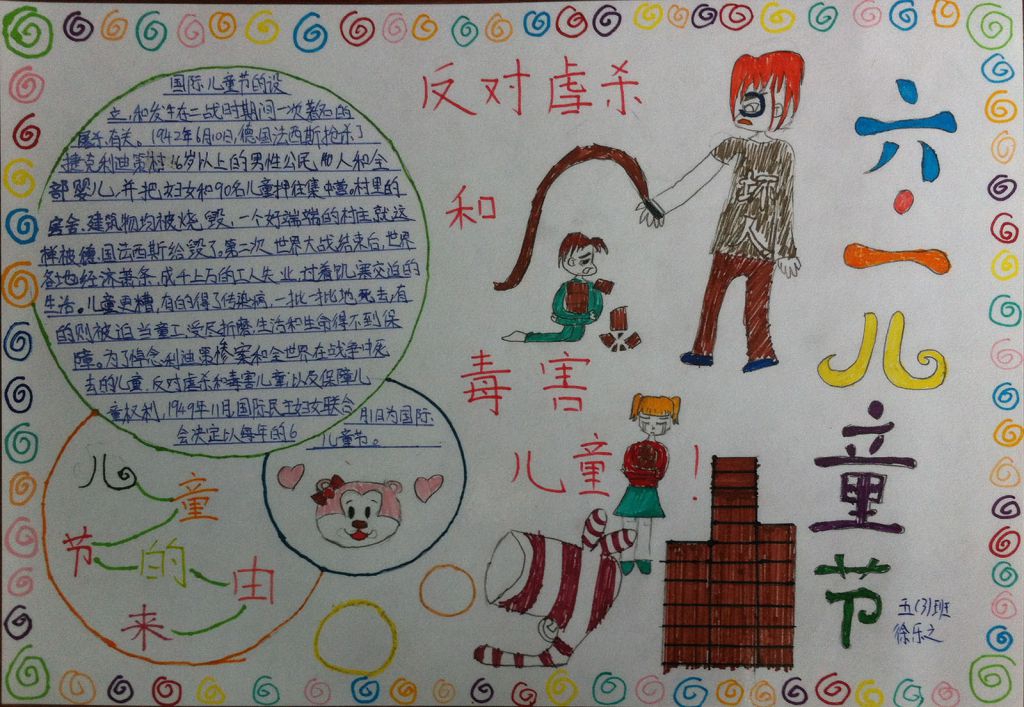 国际儿童节的设
立,和发生在二战时期间一次著名的
屠杀有关。1942年6月10日,德国法西斯枪杀了
捷克利迪策村16岁以上的男性公民 人和全
部婴儿,并把妇女和90名儿童押往集中营。村里的
房舍、建筑物均被烧毁,一个好端端的村庄就这
样被德国法西斯给毁了。第二次世界大战结束后,世界
各地经济萧条,成千上万的工人失业,过着饥寒交迫的
生活。儿童更糟,有的得了传染病,一批一批地死去,有
的则被迫当童工,受尽折磨,生活和生命得不到保
障。为了悼念利迪 惨案和全世界在战争中死
去的儿童,反对虐杀和毒害儿童,以及保障儿
童权利,1949年11月国际民主妇女联合
会决定以每年的6
月1日为国际
儿童节。
儿童
节的由
来
反对虐杀
和
毒害
儿童!
坏人
六·一儿童节
五(3)班
徐乐之